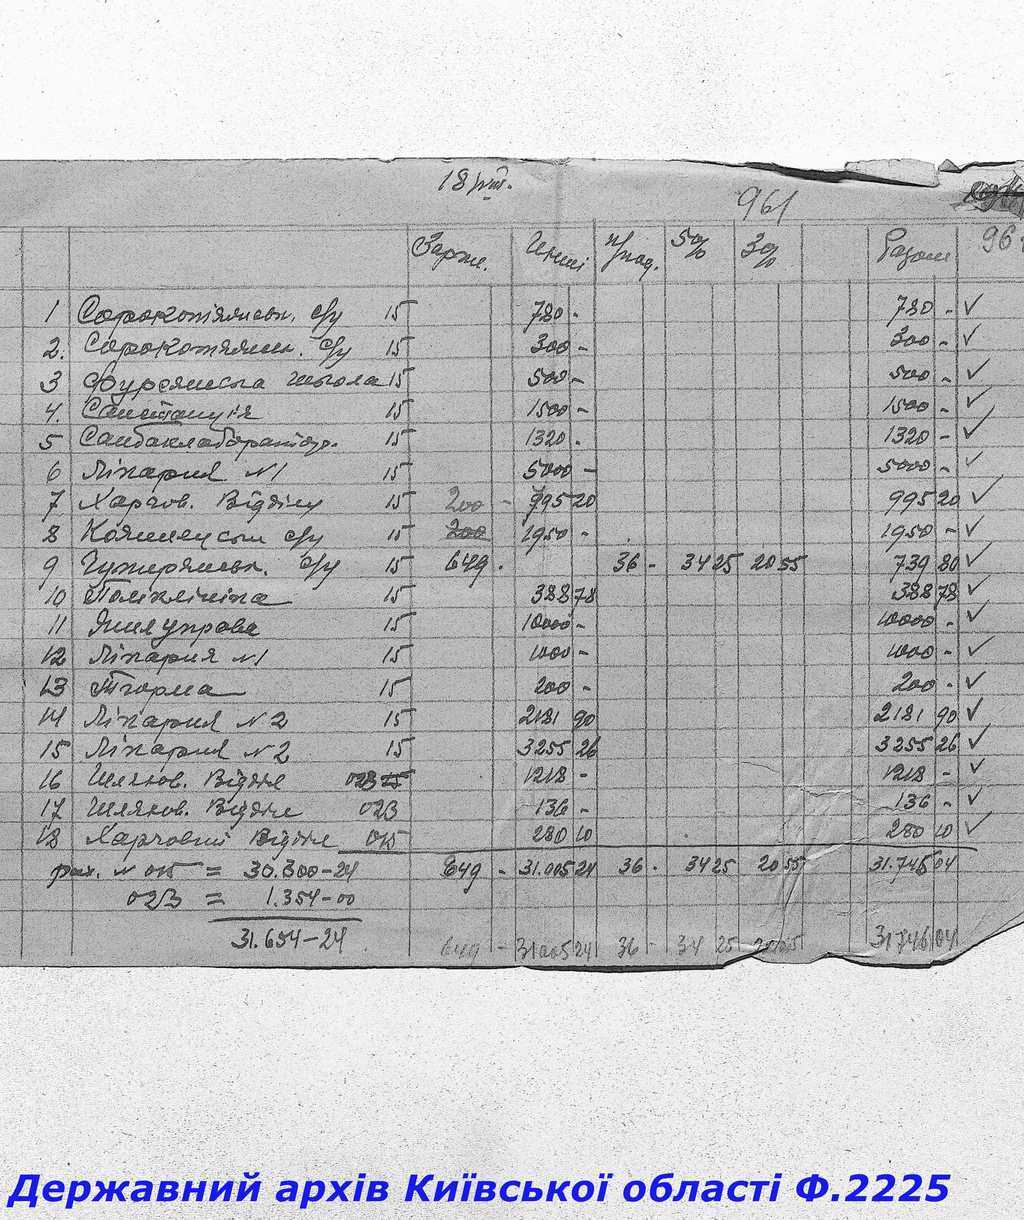 18 шт.
961
96
Зарж. Инші п/под. 5% 3% Разом
1 Сорокотязьськ. с/у 15 780 - 780 - ✓
2. Сорокотязьк. с/у 15 300 - 300 - ✓
3 школа 15 500 - 500 - ✓
4. Санстанція 15 1500 - 1500 - ✓
5 Санбаклабораторт. 15 1320 - 1320 - ✓
6 Лікарня N1 15 5000 - 5000 - ✓
7 Харчов. Відділу 15 200 - 995 20 995 20 ✓
8 с/у 15 200 1950 - 1950 - ✓
9 с/у 15 649. 36 - 34 25 20 55 739 80 ✓
10 Поліклініка 15 388 78 388 78 ✓
11 управа 15 10000 - 10000 - ✓
12 Лікарня N1 15 1000 - 1000 - ✓
13 15 200 - 200 - ✓
14 Лікарня N2 15 2181 90 2181 90 ✓
15 Лікарня N2 15 3255 26 3255 26 ✓
16 Шляхов. Відділ 023 15 1218 - 1218 - ✓
17 Шляхов. Відділ 023 136 - 136 - ✓
18 Харчовий Відділ 015 280 10 280 10 ✓
рах. N 015 = 30.300-24 649 - 31.005 24 36 - 34 25 20 55 31.745 04
023 = 1.354-00
31.654-24 649 - 31005 24 36 - 34 25 20 55 31746 04
Державний архів Київської області Ф.2225